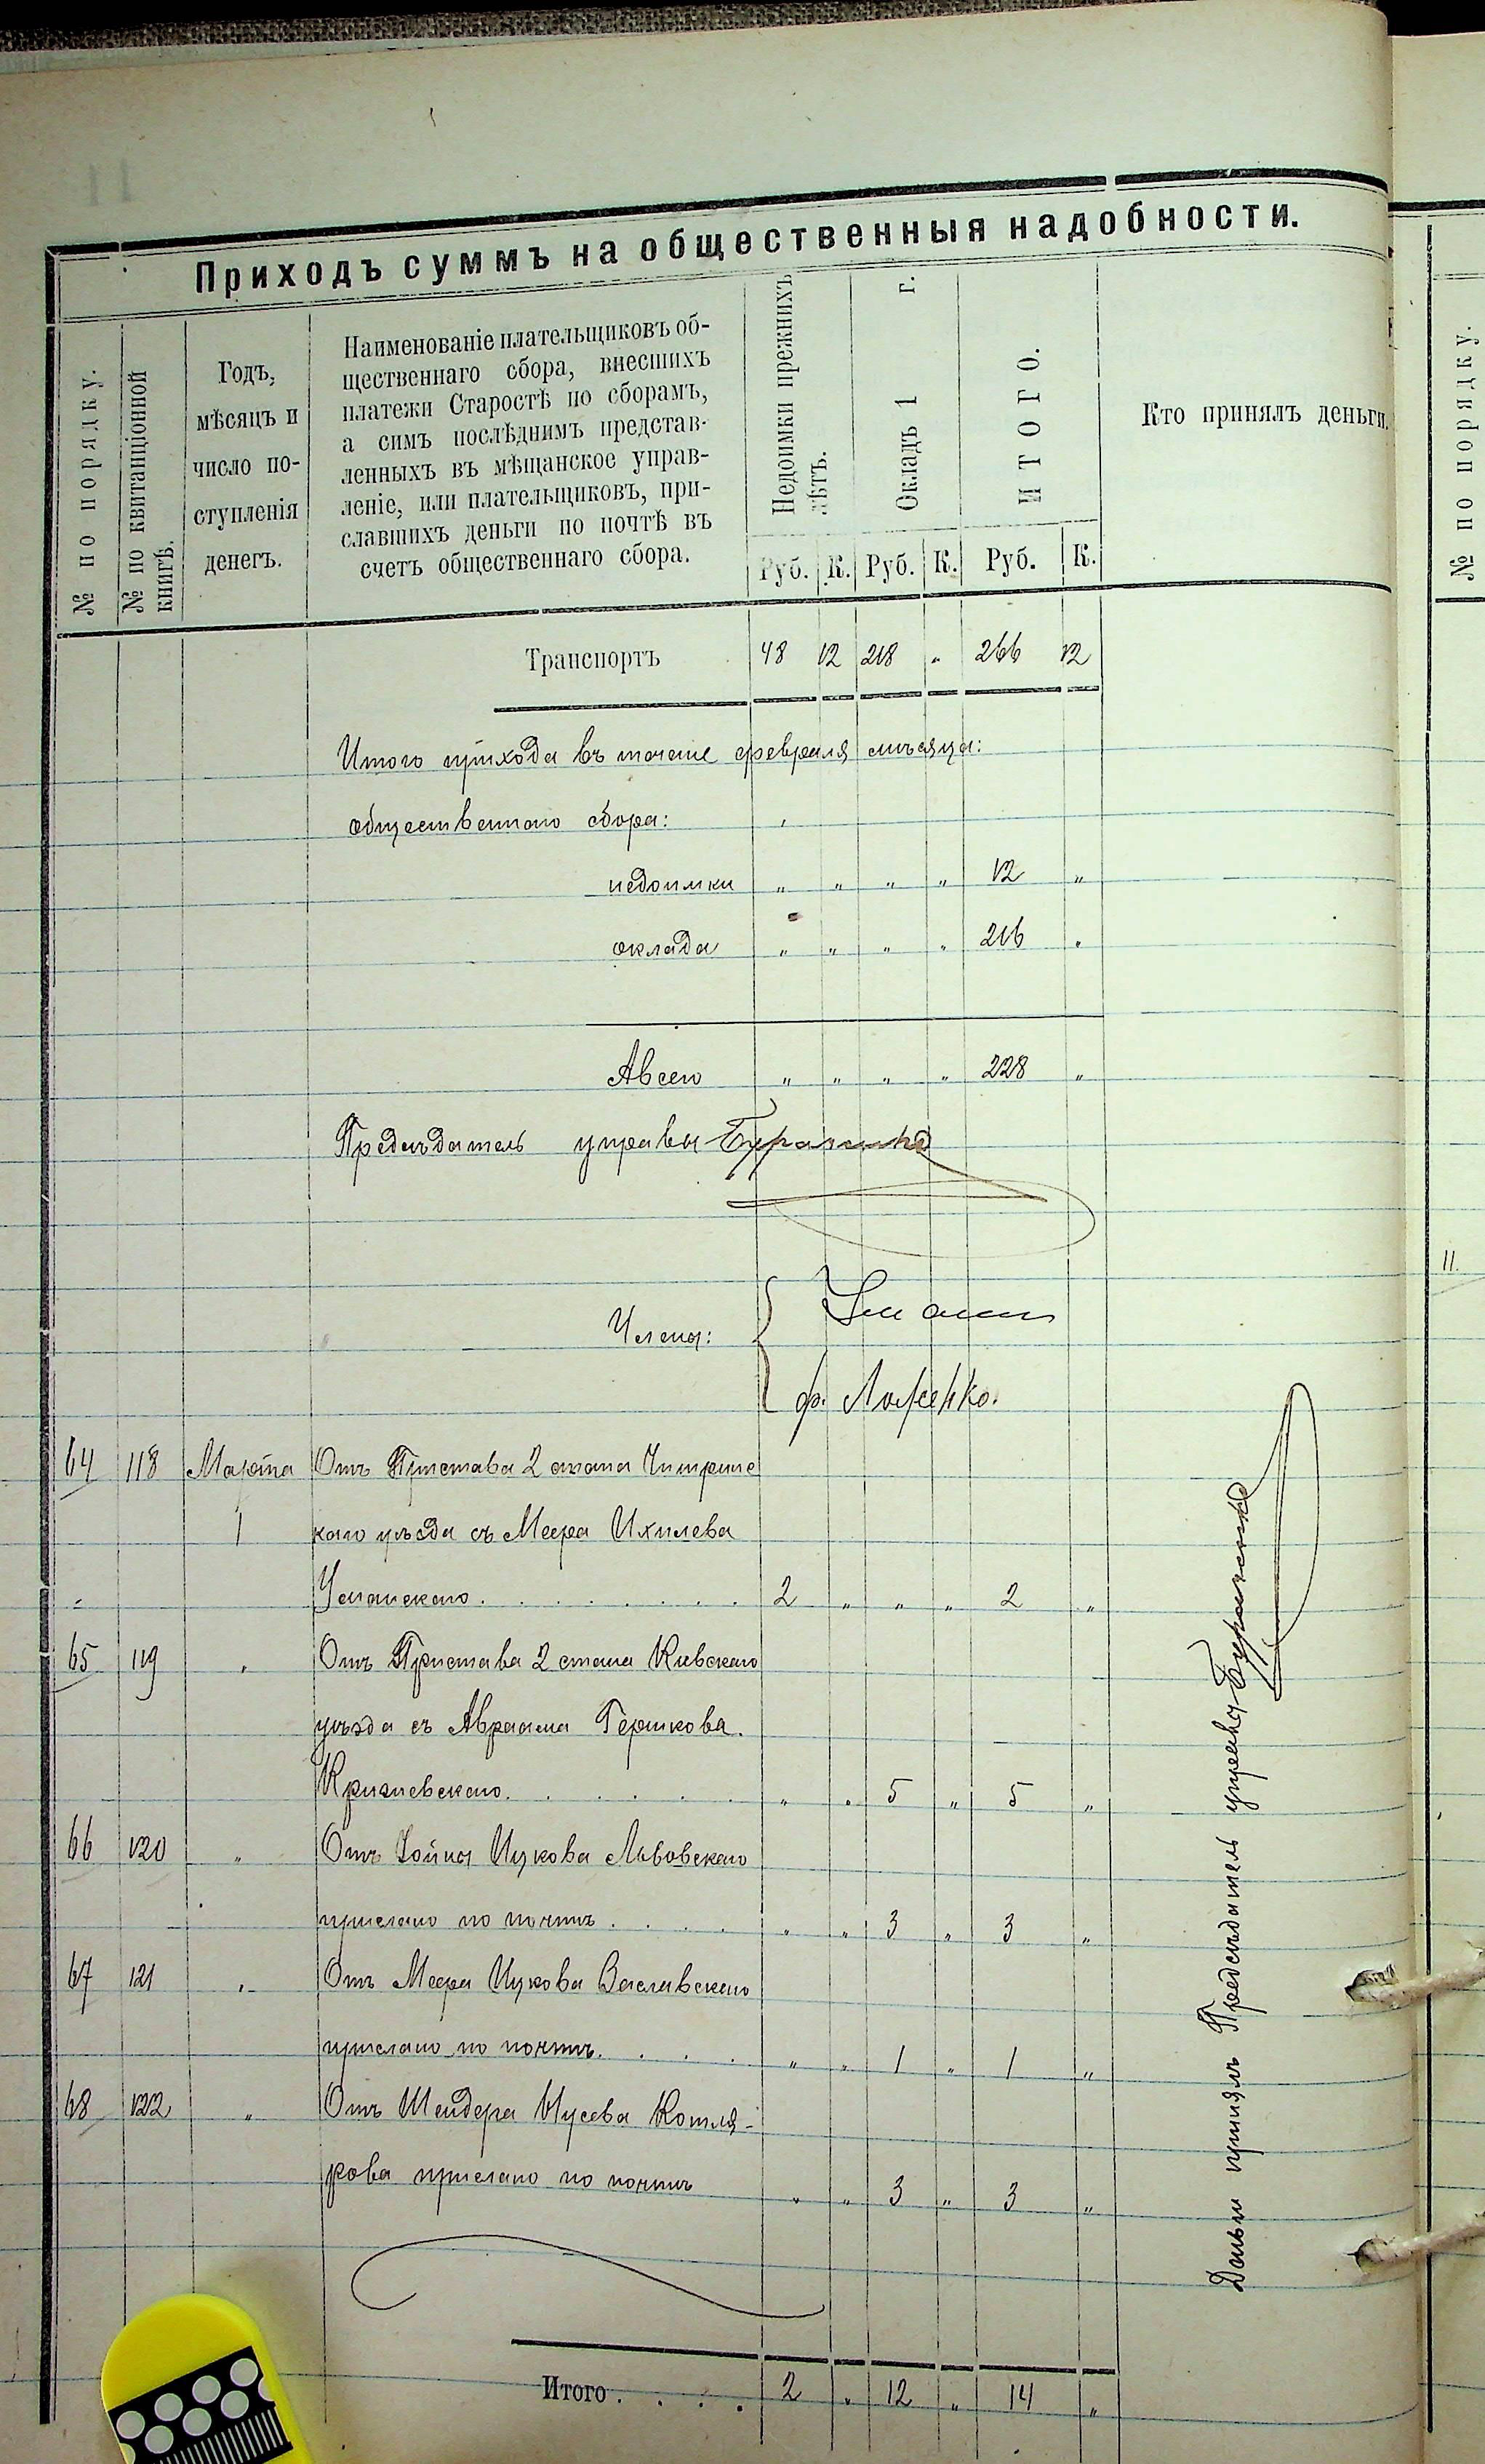 Приходъ суммъ на общественныя надобности.
№ по порядку.
№ по квитанціонной книгѣ.
Годъ,
мѣсяцъ и
число по-
ступленія
денегъ.
Наименованіе плательщиковъ об-
щественнаго сбора, внесшихъ
платежи Старостѣ по сборамъ,
а симъ послѣднимъ представ-
ленныхъ въ мѣщанское управ-
леніе, или плательщиковъ, при-
славшихъ деньги по почтѣ въ
счетъ общественнаго сбора.
Недоимки прежнихъ лѣтъ.
Окладъ 1 г.
ИТОГО.
Кто принялъ деньги.
Руб. К. Руб. К. Руб. К.
Транспортъ 48 12 218 „ 266 12
Итого прихода въ течение февраля мѣсяца:
общественнаго сбора:
недоимки „ „ „ „ 12 „
оклада „ „ „ „ 216 „
А всего „ „ „ „ 228 „
Предсѣдатель управы
Члены:
Ф. Ложенко.
64 118 Марта Отъ Пристава 2 стана Чигринс
1 каго уѣзда съ Меера Ихилева
Уманскаго . . . . . . . . 2 „ „ „ 2 „
65 119 „ Отъ Пристава 2 стана Киевскаго
уѣзда съ Авраама Гершкова
Кричевскаго . . . . . . „ „ 5 „ 5 „
66 120 „ Отъ Іойны Ицкова Львовскаго
прислано по почтѣ . . . . „ „ 3 „ 3 „
67 121 „ Отъ Меера Ицкова Заславскаго
прислано по почтѣ . . . . „ „ 1 „ 1 „
68 122 „ Отъ Шендера Нусева Котля-
рова прислано по почтѣ „ „ 3 „ 3 „
Деньги принялъ Предсѣдатель управы
Итого . . . . 2 „ 12 „ 14 „
№ по порядку.
11.